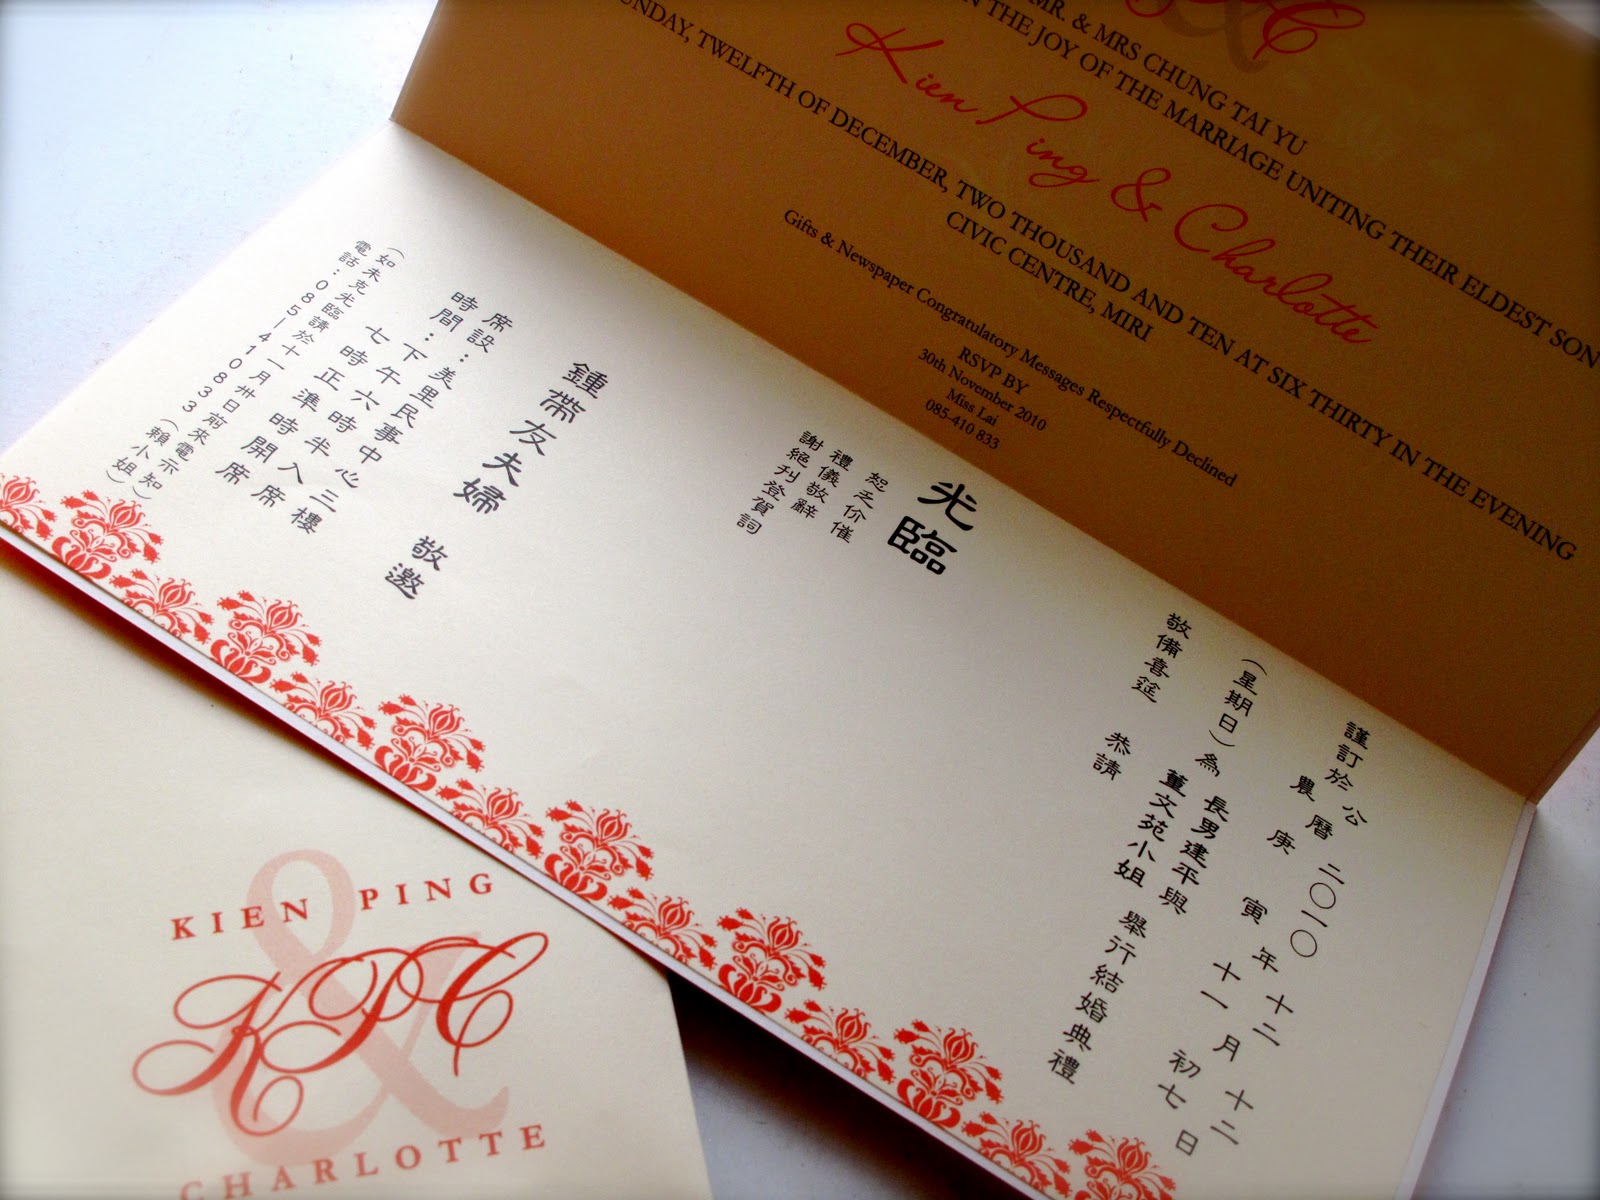 MR. & MRS CHUNG TAI YU
IN THE JOY OF THE MARRIAGE UNITING THEIR ELDEST SON
Kien Ping & Charlotte
TWELFTH OF DECEMBER, TWO THOUSAND AND TEN AT SIX THIRTY IN THE EVENING
CIVIC CENTRE, MIRI
Gifts & Newspaper Congratulatory Messages Respectfully Declined
RSVP BY
30th November 2010
Miss Lai
085-410 833
謹訂於公 二〇一〇 十二 十二
農曆 庚 寅 年 十一 月 初七 日
(星期日)為 長男建平與
董文苑小姐 舉行結婚典禮
敬備喜筵 恭請
光臨
恕乏价催
禮儀敬辭
謝絕刊登賀詞
鍾帶友夫婦 敬邀
席設:美里民事中心三樓
時間:下午六時半入席
七時正準時開席
(如未克光臨請於十一月卅日前來電示知)
電話:085-410833(賴小姐)
KIEN PING
&
KPC
CHARLOTTE